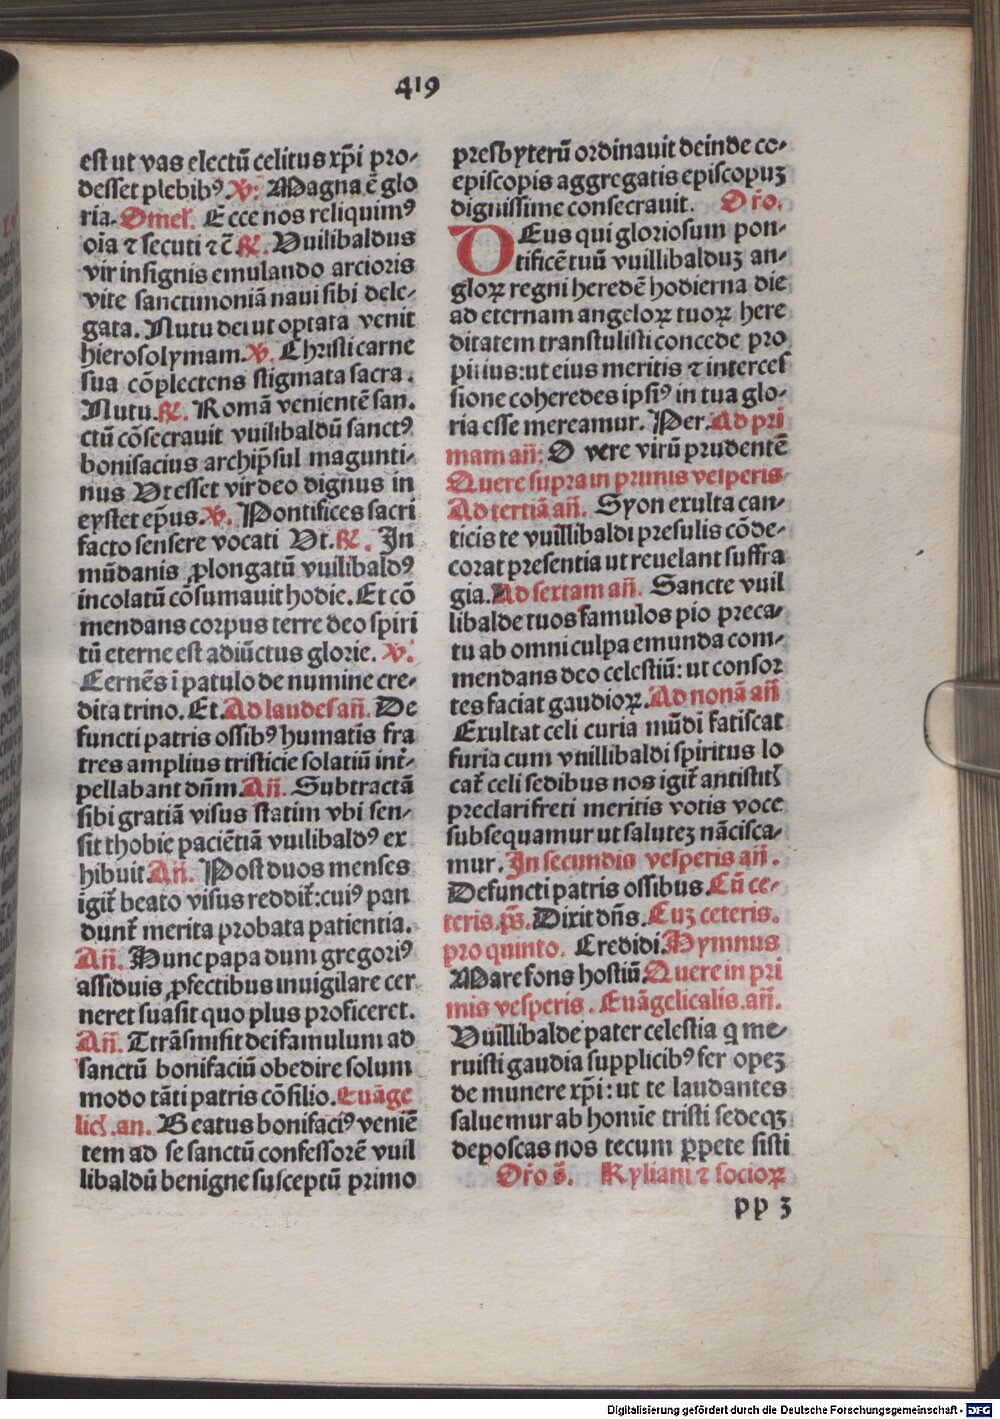 419
est ut vas electū celitus xp̄i pro-
desset plebibꝰ ℣: Magna ē glo
ria. Omeł. Ecce nos reliquimꝰ
oīa ⁊ secuti ⁊ c̄ ℟. Vuilibaldus
vir insignis emulando arcioris
vite sanctimoniā naui sibi dele-
gata. Nutu dei ut optata venit
hierosolymam. ℣. Christi carne
sua cōplectens stigmata sacra.
Nutu. ℟. Romā venientē san.
ctū cōsecrauit vuilibaldū sanctꝰ
bonifacius archip̄sul magunti-
nus Vt esset vir deo dignus in
eystet ep̄us. ℣. Pontifices sacri
facto sensere vocati Vt. ℟. In
mūdanis ꝓlongatū vuilibaldꝰ
incolatū cōsumauit hodie. Et cō
mendans corpus terre deo spiri
tū eterne est adiūctus glorie. ℣.
Cernēs i patulo de numine cre-
dita trino. Et. Ad laudes an̄. De
functi patris ossibꝰ humatis fra
tres amplius tristicie solatiū int̄-
pellabant dn̄m. An̄. Subtractā
sibi gratiā visus statim vbi sen-
sit thobie paciētiā vuilibaldꝰ ex
hibuit. An̄. Post duos menses
igit̄ beato visus reddit̄: cuiꝰ pan
dunt̄ merita probata patientia.
An̄. Hunc papa dum gregoriꝰ
assiduis ꝓfectibus inuigilare cer
neret suasit quo plus proficeret.
An̄. Ttrāsmisit dei famulum ad
sanctū bonifaciū obedire solum
modo tāti patris cōsilio. Euāge
lic̄. an. Beatus bonifaciꝰ veniē
tem ad se sanctū confessorē vuil
libaldū benigne susceptū primo
presbyterū ordinauit deinde co-
episcopis aggregatis episcopuꝫ
dignissime consecrauit. Or̄o.
DEus qui gloriosum pon-
tificē tuū vuillibalduꝫ an-
gloꝝ regni heredē hodierna die
ad eternam angeloꝝ tuoꝝ here
ditatem transtulisti concede pro
pitius: ut eius meritis ⁊ interces
sione coheredes ipsiꝰ in tua glo-
ria esse mereamur. Per. Ad pri
mam an̄: O vere virū prudentē
Quere supra in primis vesperis
Ad tertiā an̄. Syon exulta can-
ticis te vuillibaldi presulis cōde-
corat presentia ut reuelant suffra
gia. Ad sextam an̄. Sancte vuil
libalde tuos famulos pio preca-
tu ab omni culpa emunda com-
mendans deo celestiū: ut consor
tes faciat gaudioꝝ. Ad nonā an̄
Exultat celi curia mūdi fatiscat
furia cum vuillibaldi spiritus lo
cat̄ celi sedibus nos igit̄ antistitꝭ
preclari freti meritis votis voce
subsequamur ut saluteꝫ nāncisca-
mur. In secundis vesperis an̄.
Defuncti patris ossibus. Cū ce-
teris. ps̄. Dixit dn̄s. Cuꝫ ceteris.
pro quinto. Credidi. Hymnus
Mare fons hostiū. Quere in pri
mis vesperis. Euāgelicalis. an̄.
Vuillibalde pater celestia q̨ me-
ruisti gaudia supplicibꝰ fer opeꝫ
de munere xp̄i: ut te laudantes
saluemur ab homīe tristi sedeqꝫ
deposcas nos tecum ꝑpete sisti
Or̄o s̄. Kyliani ⁊ socioꝝ
pp 3
Digitalisierung gefördert durch die Deutsche Forschungsgemeinschaft - DFG